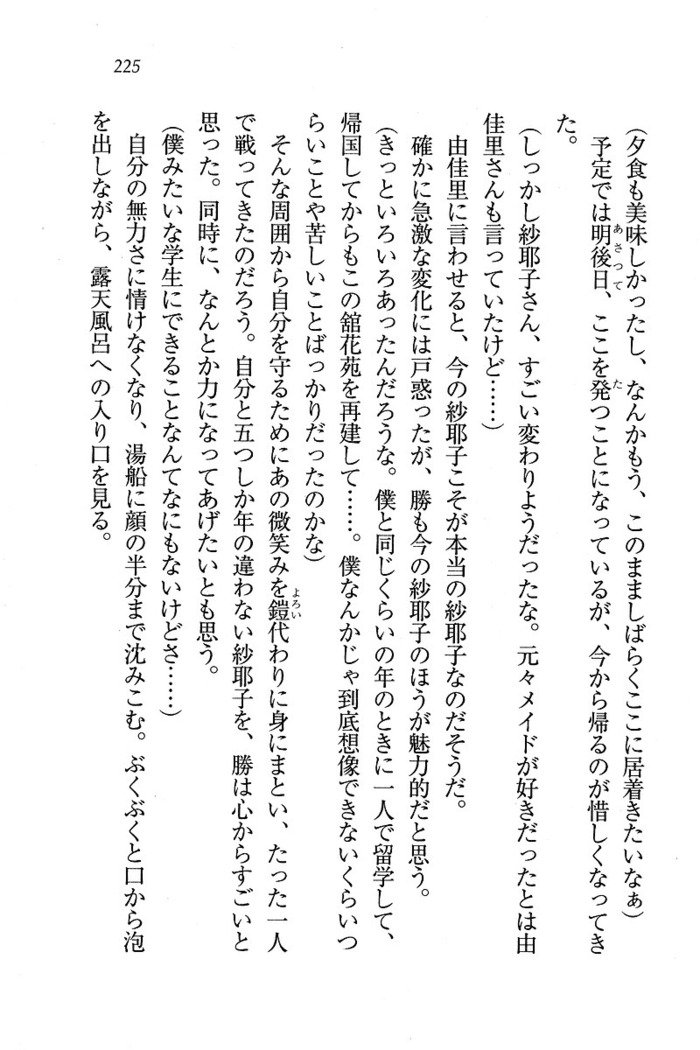 225
(夕食も美味しかったし、なんかもう、このまましばらくここに居着きたいなぁ)
予定では明後日、ここを発つことになっているが、今から帰るのが惜しくなってき
た。
(しっかし紗耶子さん、すごい変わりようだったな。元々メイドが好きだったとは由
佳里さんも言っていたけど……)
由佳里に言わせると、今の紗耶子こそが本当の紗耶子なのだそうだ。
確かに急激な変化には戸惑ったが、勝も今の紗耶子のほうが魅力的だと思う。
(きっといろいろあったんだろうな。僕と同じくらいの年のときに一人で留学して、
帰国してからもこの舘花苑を再建して……。僕なんかじゃ到底想像できないくらいつ
らいことや苦しいことばっかりだったのかな)
そんな周囲から自分を守るためにあの微笑みを鎧代わりに身にまとい、たった一人
で戦ってきたのだろう。自分と五つしか年の違わない紗耶子を、勝は心からすごいと
思った。同時に、なんとか力になってあげたいとも思う。
(僕みたいな学生にできることなんてなにもないけどさ……)
自分の無力さに情けなくなり、湯船に顔の半分まで沈みこむ。ぶくぶくと口から泡
を出しながら、露天風呂への入り口を見る。
あさって
た
よろい